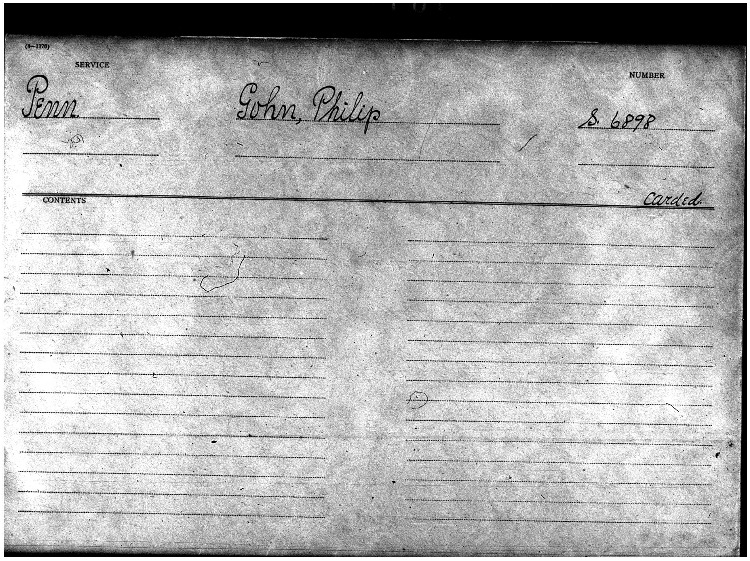 (3—1270)
SERVICE
NUMBER
Penn. Gohn, Philip S. 6898
CONTENTS
Carded.